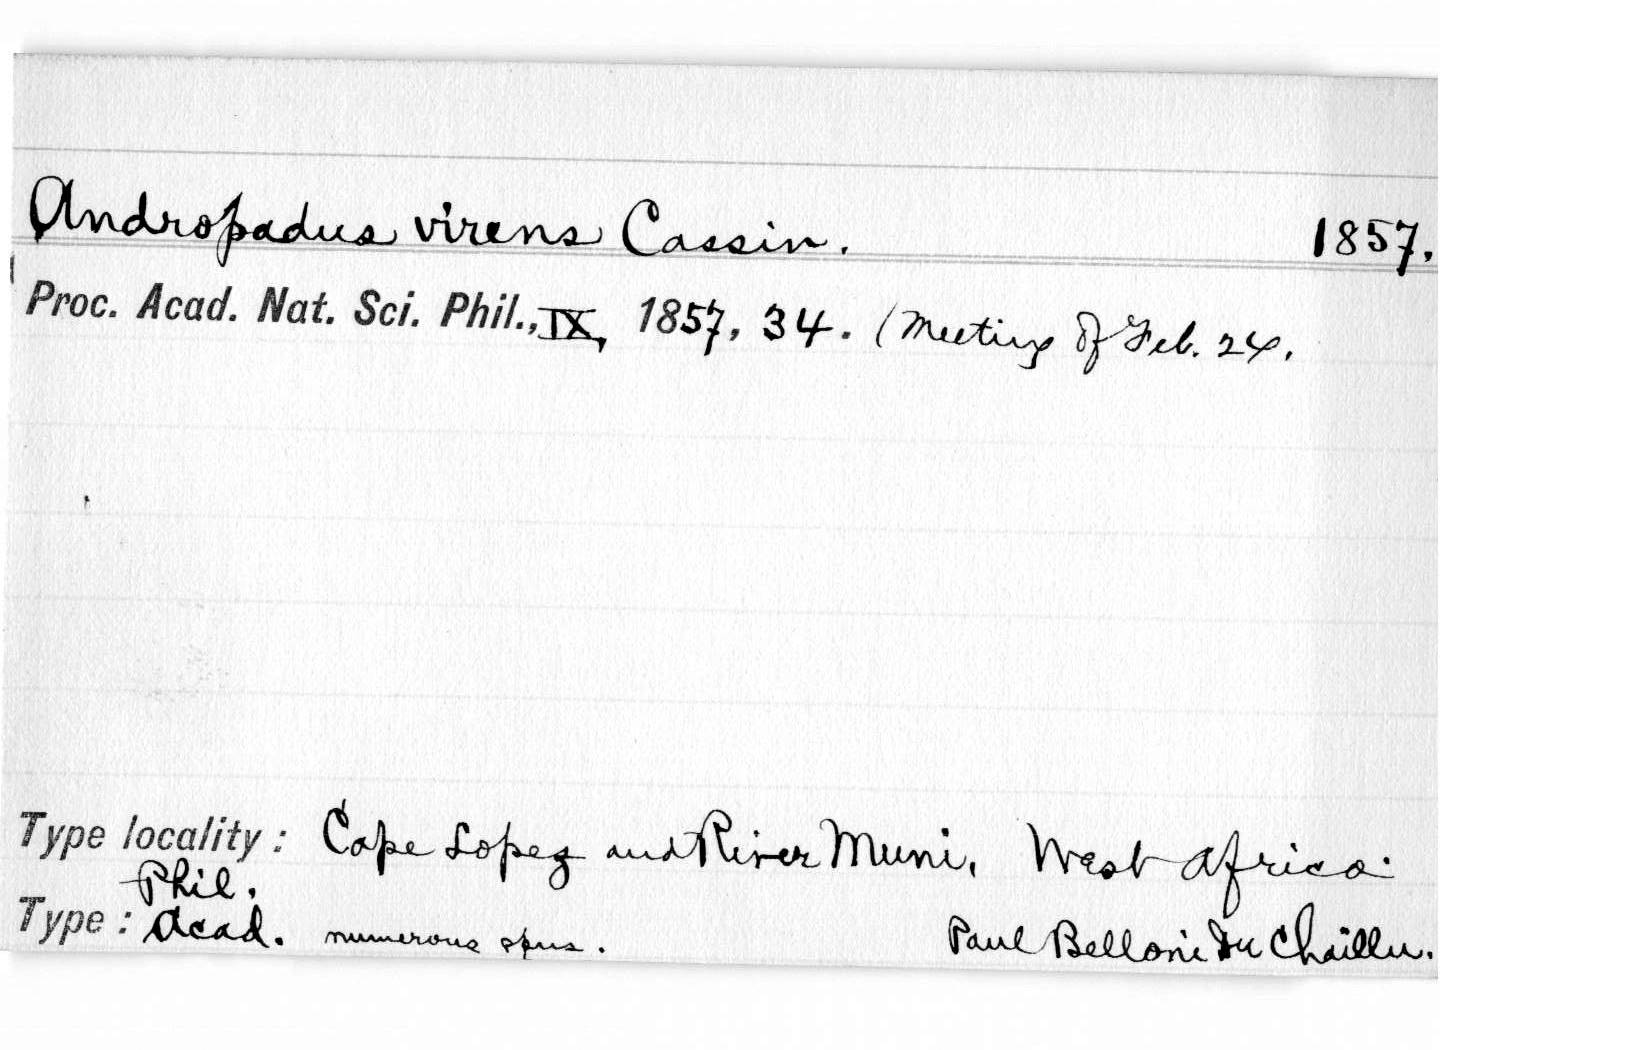 Andropadus virens Cassin. 1857.
Proc. Acad. Nat. Sci. Phil., IX, 1857, 34. (Meeting of Feb. 24.
Type locality: Cape Lopez and River Muni, West Africa.
Phil.
Type: Acad. numerous spns. Paul Belloni Du Chaillu.